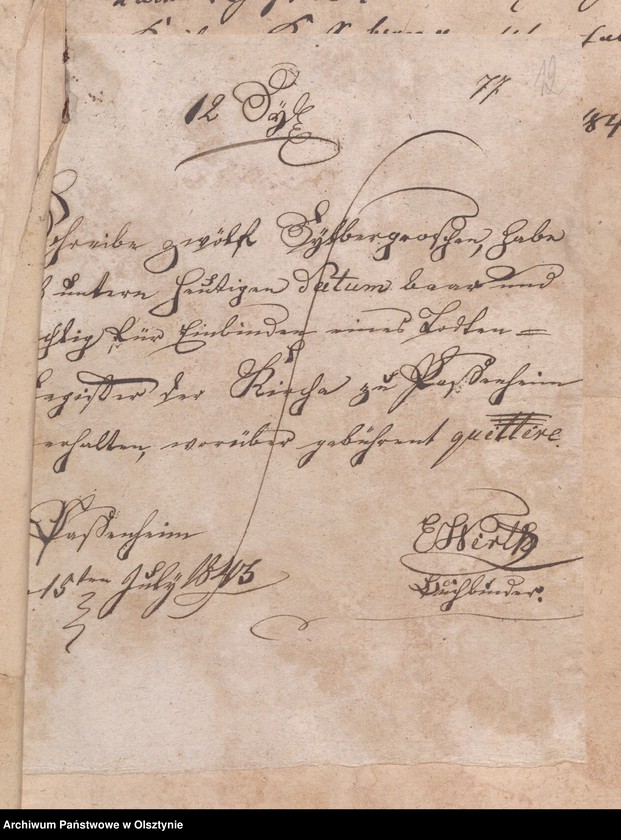 77. 12
12 Sylgr
Schreibe zwölf Sylbergroschen, habe
untern heutigen Datum baar und
richtig für Einbinden eines Todten=
register der Kirche zu Passenheim
erhalten, worüber gebührent quittire.
Passenheim
15ten July 1843
E Wirth
Buchbinder.
Archiwum Państwowe w Olsztynie